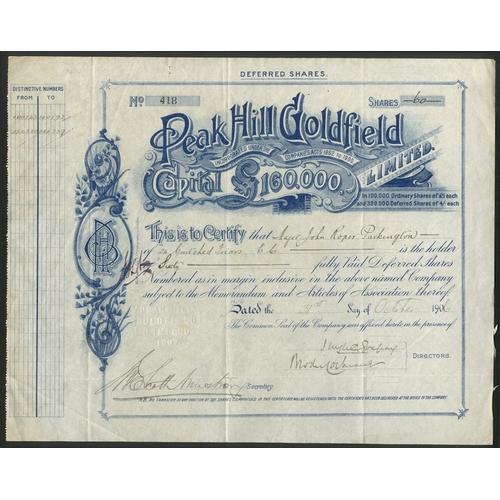 DEFERRED SHARES.
DISTINCTIVE NUMBERS
FROM TO
No 418
SHARES 60
Peak Hill Goldfield
INCORPORATED UNDER THE COMPANIES ACTS 1862 TO 1893
LIMITED.
Capital £160,000.
In 100,000 Ordinary Shares of £1 each
and 300,000 Deferred Shares of 4/- each
This is to Certify that Major John Roper Parkington
of 24 Crutched Friars E.C. is the holder
of Sixty fully Paid Deferred Shares
Numbered as in margin inclusive in the above named Company
subject to the Memorandum and Articles of Association thereof.
Dated the day of October 1906
The Common Seal of the Company was affixed hereto in the presence of
DIRECTORS.
Secretary
N.B. NO TRANSFER OF ANY PORTION OF THE SHARES COMPRISED IN THIS CERTIFICATE WILL BE REGISTERED UNTIL THE CERTIFICATE HAS BEEN DELIVERED AT THE OFFICE OF THE COMPANY